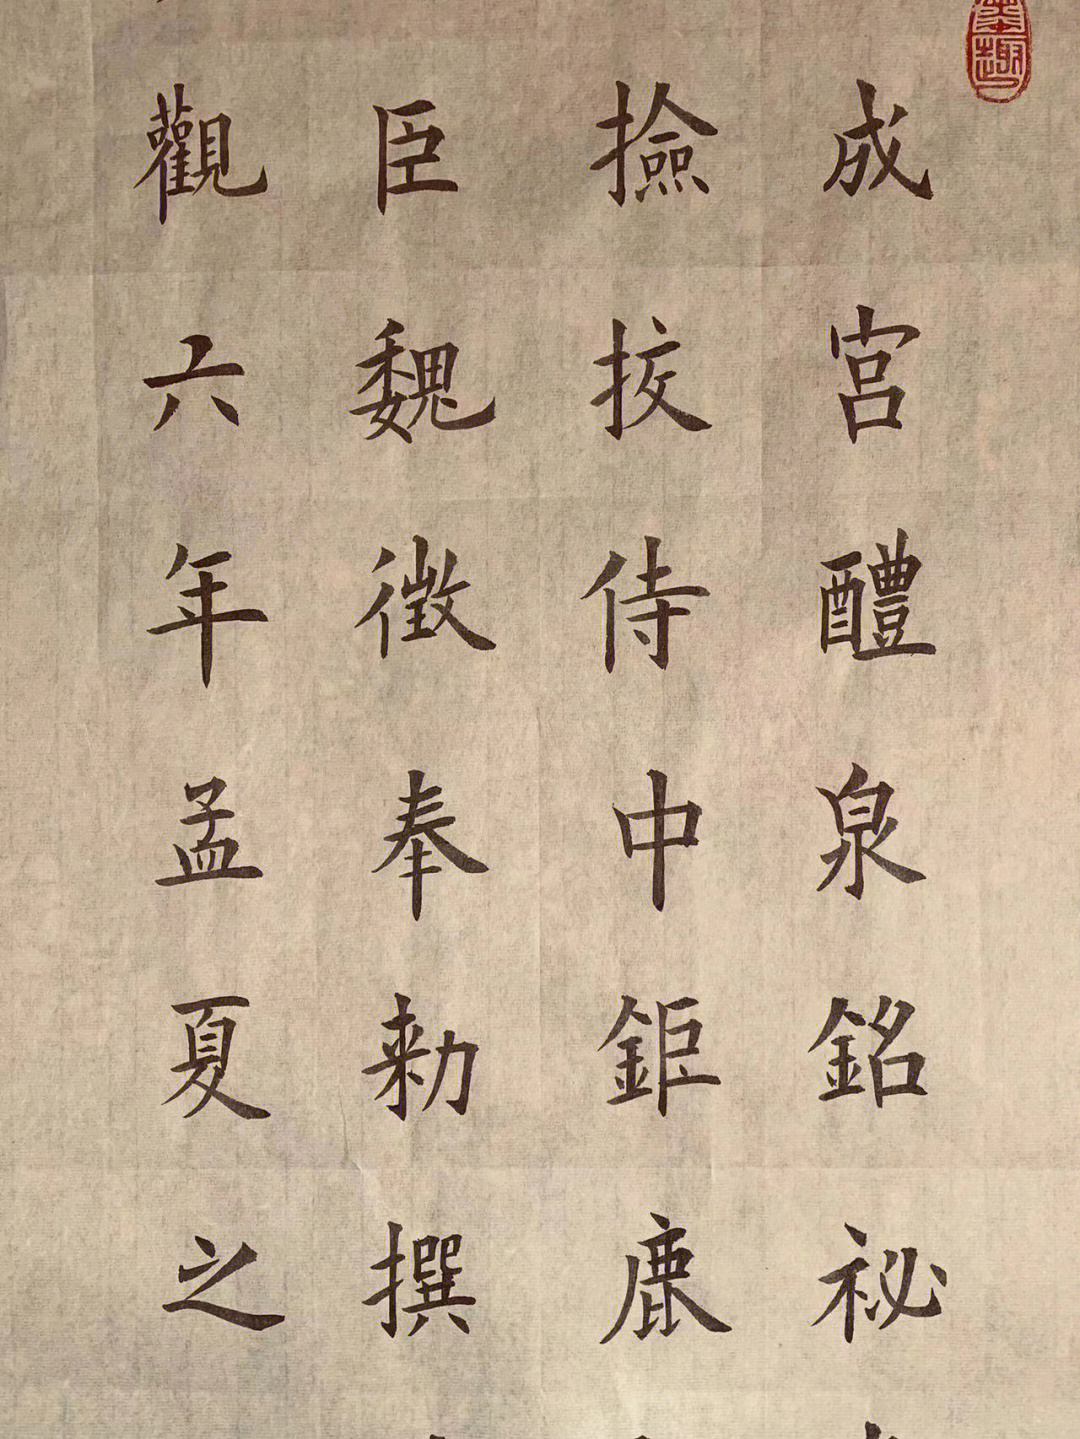 成宮醴泉銘祕
撿挍侍中鉅鹿
臣魏徵奉勑撰
觀六年孟夏之